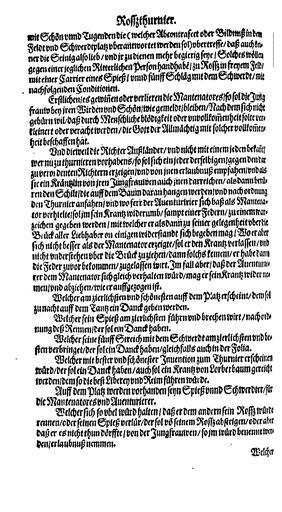 Roßzthurnier.
mit Schön vnnd Tugenden die (welcher Abcontrafect oder Bildnuß inn
Feldt vnd Schwerdtplatz verantwortet werden sol) vbertreffe / daß auch kei
ner die Seinig also lieb / vnd jr zu dienen mehr begierig seye / Solches wöllen
gegen einer jeglichen Ritterlichen Person handhabē / zu Roß in freyem Feld /
mit einer Carier eines Spieß / vnnd fünff Schläg mit dem Schwerdt / mit
nachfolgenden Conditionen.
Erstlichen / es gewiñen oder verlieren die Mantenatores / so sol die Jung
frauw bey jren Wirden vnd Schön / wie gemeldt / bleiben / Nach dem sich nicht
gebürn wil / daß durch Menschliche blödigkeit oder vnvolkommenheit solt ver
kleinert oder veracht werden / die Gott der Allmächtig mit solcher vollkomen
heit beschaffen hat.
Vnd dieweil die Richter Außländer / vnd nicht mit einem jeden bekañt
wer mit zu thurnieren vorhabens / so sol sich ein jeder derselbigen / gegen den dar
zu verordenten Richtern erzeigen / vnd von jnen erlaubnuß empfahen / vnd als
für ein Kräntzlin von jren Jungfrauwen auch jnen darreichen / oder aber
den Schilt / sie auff den Baum daran hangen werden / vnd nach ordnung
den Thurnier anfahen / vnd wo fern der Auenturierer sich baß als Mantena
tor verhielte / sol jm sein Krantz widerumb / sampt einer Federn / zu einem war
zeichen gegeben werden / mit welcher er als dann zu seiner gelegenheit vber die
Bruck aller Liebhaber on einigen widerstandt sich begeben mag / Wo er aber
sich nicht besser als der Mantenator erzeigte / sol er den Krantz verlassen / vnd
nicht vnderstehen vber die Bruck zu ziehen / dann solchs keinem / er habe dann
die Feder zuvor bekommen / zugelassen wirt. Im fall aber / daß der Auentu
rierer dem Mantenator sich gleich verhalten würd / mag er sein Krantz wider ne
men / vnd abziehen / wie er auffgezogen ist.
Welcher am zierlichsten vnd schönesten auff dem Platz erscheint / dem sol
zu nacht auff dem Tantz ein Danck geben werden.
Welcher sein Spieß am zierlichsten führen vnd brechen wirt / nach ord
nung deß Rennen / der sol ein Danck haben.
Welcher seine fünff Streich mit dem Schwerdt am zierlichsten vnd be
sten verbringet / der sol ein Danck haben / gleichfalls auch in der Folia.
Welcher mit bester vnd schönester Inuention zum Thurnier erscheinen
würd / der sol ein Danck haben / auch sol ein Krantz von Lorber baum gereicht
werden / dem so die best Liberey vnd Reim führen würde.
Auff dem Platz werden vorhanden seyn Spieß vnnd Schwerdter / für
die Mantenatores vnd Auenturierer.
Welcher sich so vbel würd halten / daß er dem andern sein Roß würd
rennen / oder seinen Spieß verlür / der sol vō seinem Roß absteigen / oder aber
daß er es nicht thun dörffte / von der Jungfrauwen / so jm würd benennt wer
den / erlaubnuß nemmen.
Welcher